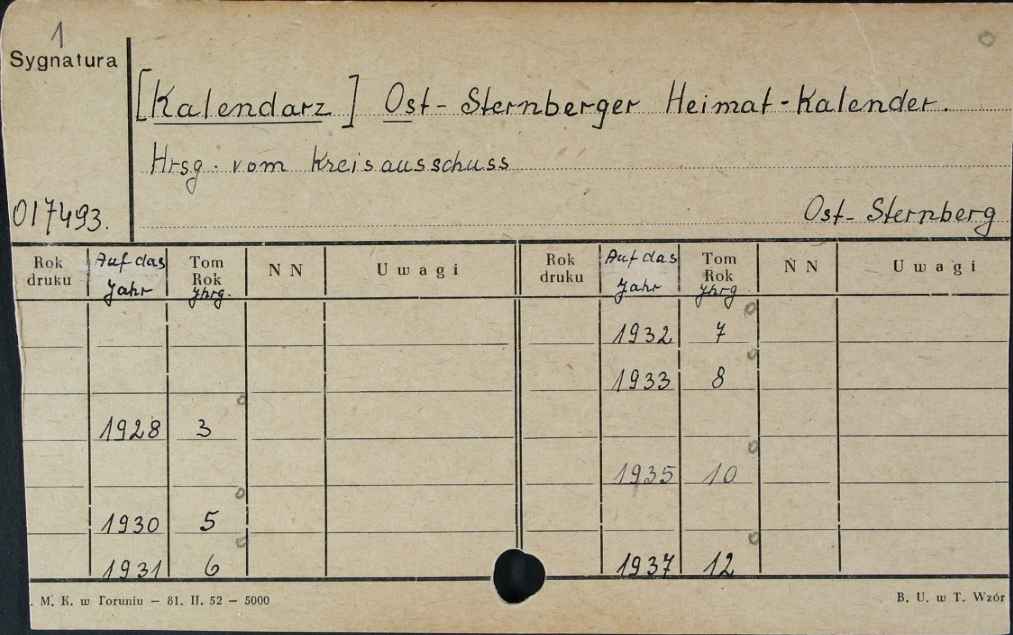 1
Sygnatura
[Kalendarz] Ost-Sternberger Heimat-Kalender.
Hrsg. vom Kreisausschuss
017493.
Ost-Sternberg
Rok druku Auf das Jahr Tom Rok Jhrg. N N Uwagi Rok druku Auf das Jahr Tom Rok Jhrg N N Uwagi
1932 7
1933 8
1928 3
1935 10
1930 5
1931 6 1937 12
. M. K. w Toruniu — 81. II. 52 — 5000 B. U. w T. Wzór